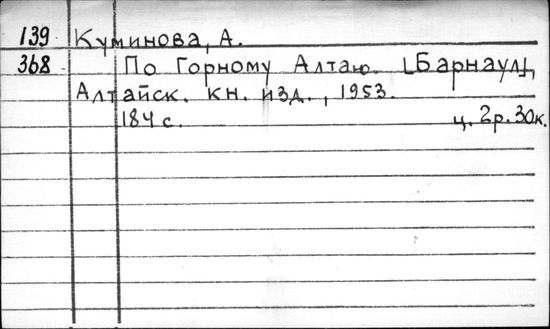 139 Куминова, А.
368 По Горному Алтаю. [Барнаул],
Алтайск. кн. изд., 1953.
184 с. ц. 2р. 30к.